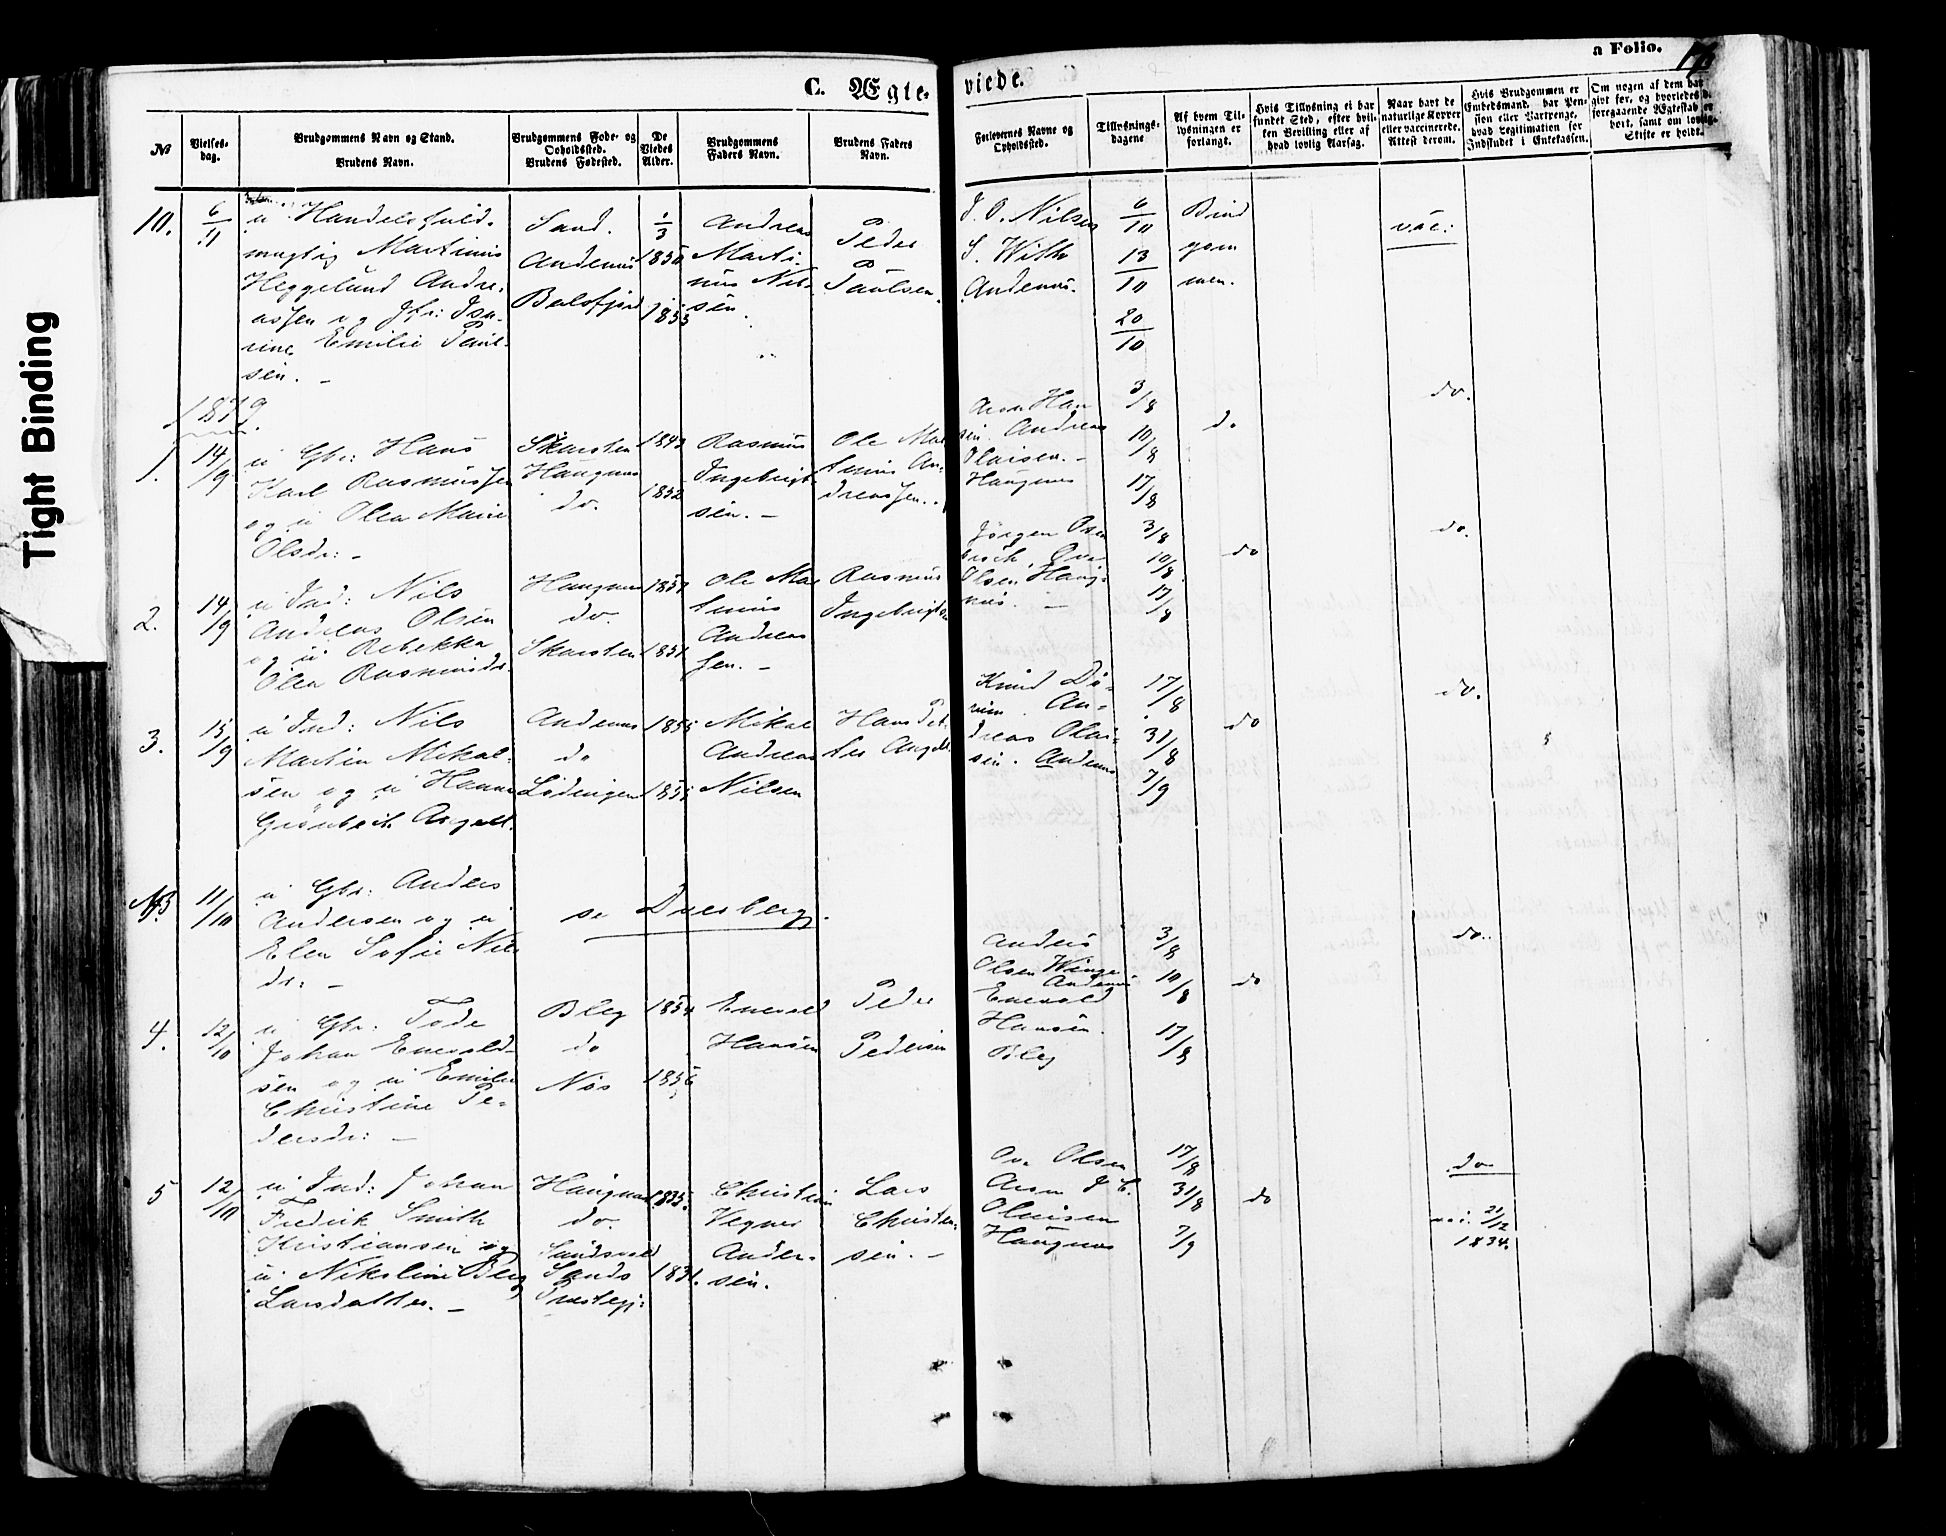 Tight Binding
C. Ægte-
viede.
a Folio.
No
Vielses-
dag.
Brudgommens Navn og Stand.
Brudens Navn.
Brudgommens Føde- og
Opholdssted.
Brudens Fødested.
De
Viedes
Alder.
Brudgommens
Faders Navn.
Brudens Faders
Navn.
Forlovernes Navne og
Opholdssted.
Tillysnings-
dagene
Af hvem Til-
lysningen er
forlangt.
Hvis Tillysning ei har
fundet Sted, efter hvil-
ken Bevilling eller af
hvad lovlig Aarsag.
Naar havt de
naturlige Kopper
eller vaccinerede.
Attest derom.
Hvis Brudgommen er
Embedsmand, har Pen-
sion eller Vartpenge,
hvad Legitimation for
Indskudet i Enkekassen.
Om nogen af dem har
givt før, og hvorledes d.
foregaaende Ægteskab er
hævt, samt om lovlig
Skifte er holdt.
10.
6/11
u Handelsfuld-
mægtig Martinus
Heggelund Andre-
assen og Jfr:
Emilie Paul-
sen. –
Sand.
Andenæs
Balsfjord
1/3
1850
1853
Andreas
Marti-
nus Nil-
sen.
Peder
Paulsen.
J. O. Nilsen
S. With
Andenæs.
6/10
13/10
20/10
Brud
gom
men.
vac:
1879.
1.
14/9
u Gbr: Hans
Karl Rasmussen
og u Olea Marie
Olsdr: –
Skarsten
Haugnæs
do.
1843
1852
Rasmus
Ingebrigt-
sen. –
Ole Mar
tinus An-
dreassen. –
Aron Han
sen. Andreas
Olaisen. –
Haugnæs
3/8
10/8
17/8
do
do.
2.
14/9
u Ind: Nils
Andreas Olsen
og u Rebekka
Olea Rasmusdr.
Haugnæs
do.
Skarsten
1857
1851
Ole Mar
tinus
Andreas
sen. –
Rasmus
Ingebrigtsen
Jørgen
Ove
Olsen Haug-
næs. –
3/8
10/8
17/8
do
do.
3.
15/9
u Ind: Nils
Martin Mikal-
sen og u Hanna
Grønbech Angell.
Andenæs
do
Lødingen
1855
1855
Mikal
Andreas
Nilsen
Hans Pet-
ter Angell
Knud Dø-
An-
dreas Olai-
sen. Andenæs
17/8
31/8
7/9
do
do.
NB
11/10
u Gbr: Anders
Andersen og u
Elen Sofie Nils
dr: –
se Dverberg.
4.
12/10
u Gbr: Tode
Johan Enevold-
sen og u Emilie
Christine Pe-
dersdr: –
Bleg
do
Nøs
1854
1856
Enevold
Hansen
Peder
Pedersen
Anders
Olsen Winge
Andenæs
Enevold
Hansen.
Bleg
3/8
10/8
17/8
do
do.
5
12/10
u Ind: Johan
Fredrik Smith
Kristiansen og
u Nikoline Berg
Larsdatter. –
Haugnæs
do.
Sandsvold
Sands
Præstegj:
1835
1831.
Christian
Vegner
Ander-
sen.
Lars
Christen-
sen. –
Ove Olsen
Aron J. C.
Olaisen
Haugnæs
17/8
31/8
7/9
do
do
vac. 21/12
1834.